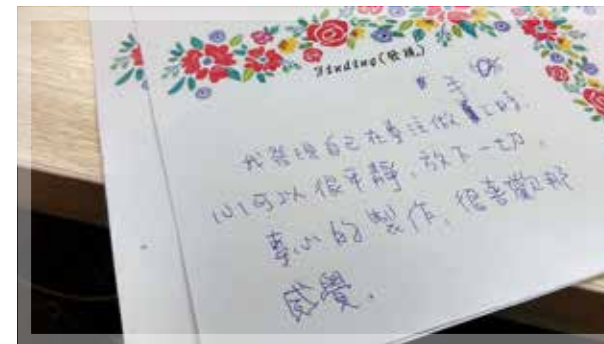 Finding(發現)
手作
我發現自己在專注做工時,
心可以很平靜,放下一切,
專心的製作,很喜歡那
感覺。